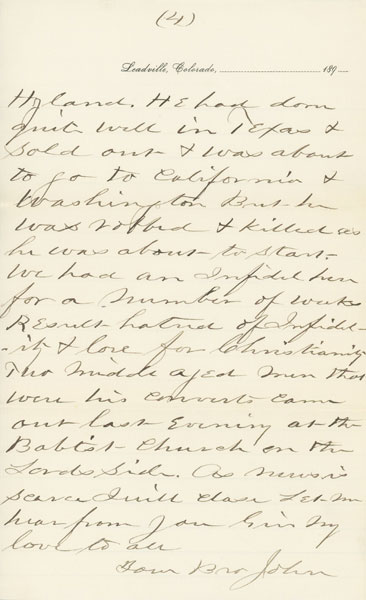 (4)
Leadville, Colorado, 189
Hyland. He had don
quit well in Texas &
sold out & was about
to go to California &
Washington But he
was robbed & killed as
he was about to start.
We had an Infidel here
for a number of weeks
Result hatred of Infidel-
-ity & love for Christianity
Two middle aged men that
were his converts came
out last Evening at the
Babtist Church on the
Lords Side. As news is
scarce I will close Let me
hear from you Give my
love to all
Your Bro John